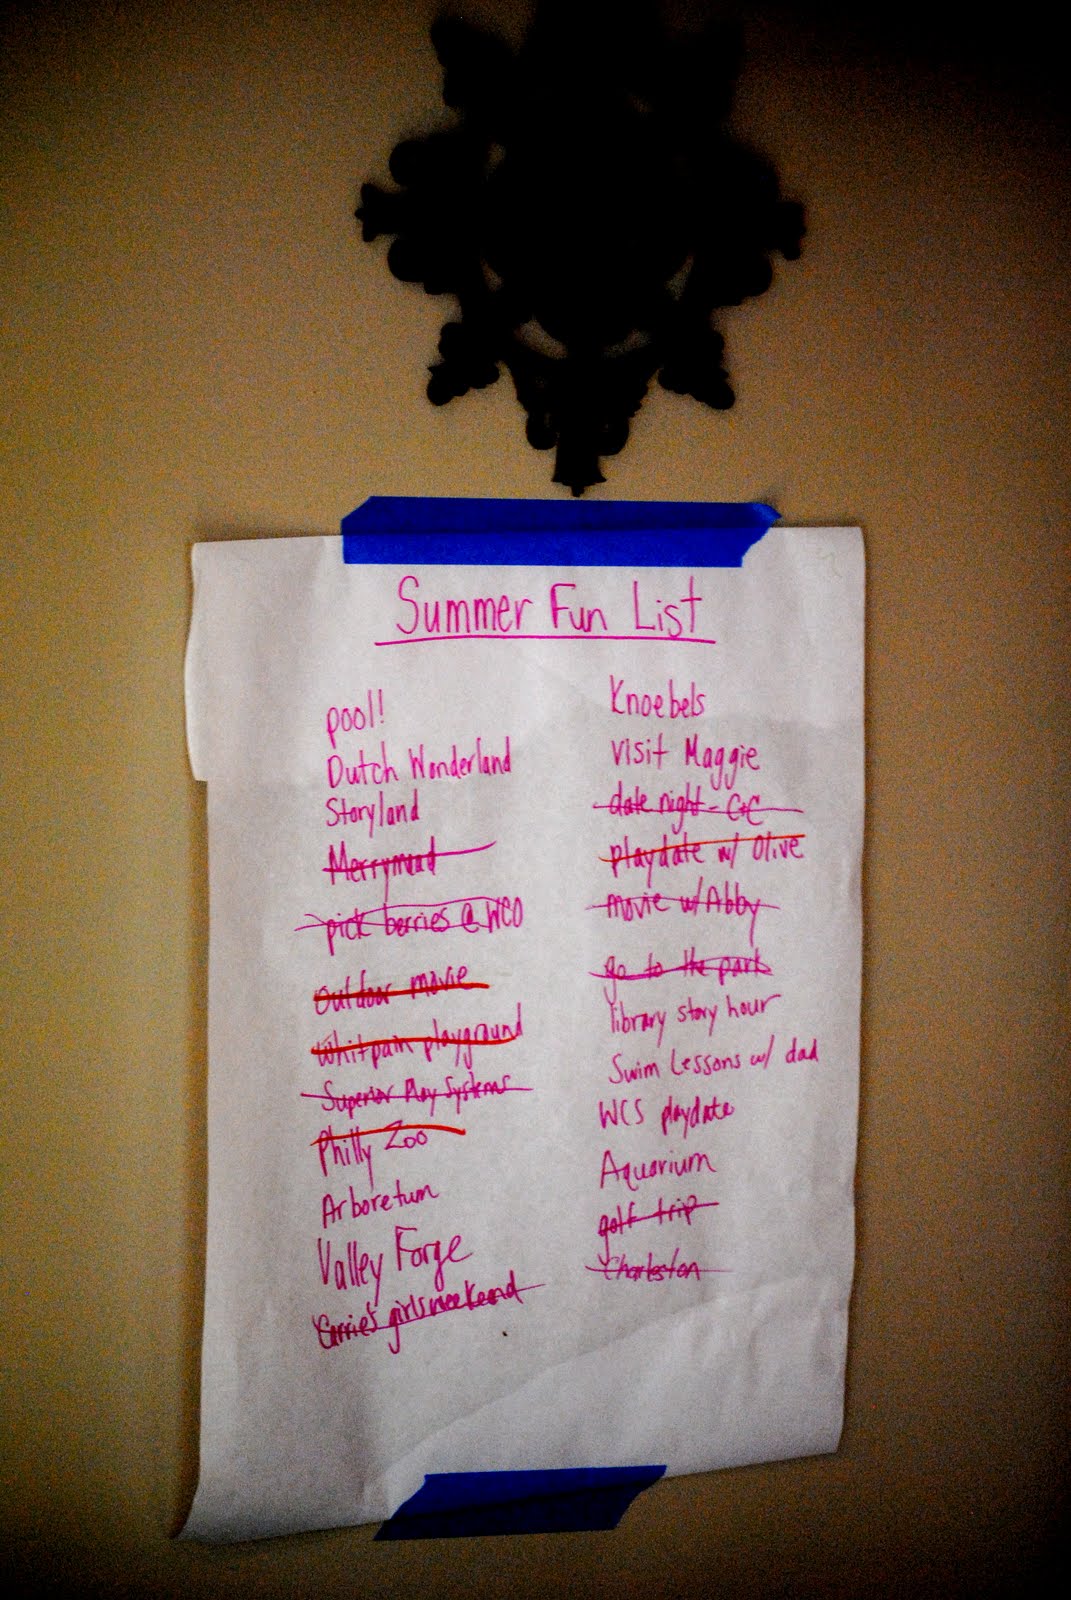 Summer Fun List
pool!
Dutch Wonderland
Storyland
Merrymead
pick berries @ WCO
outdoor movie
Whitpain playground
Superior Play Systems
Philly Zoo
Arboretum
Valley Forge
Carrie's girls weekend
Knoebels
visit Maggie
date night - C+C
playdate w/ Olive
movie w/ Abby
go to the park
library story hour
Swim Lessons w/ dad
WCS playdate
Aquarium
golf trip
Charleston